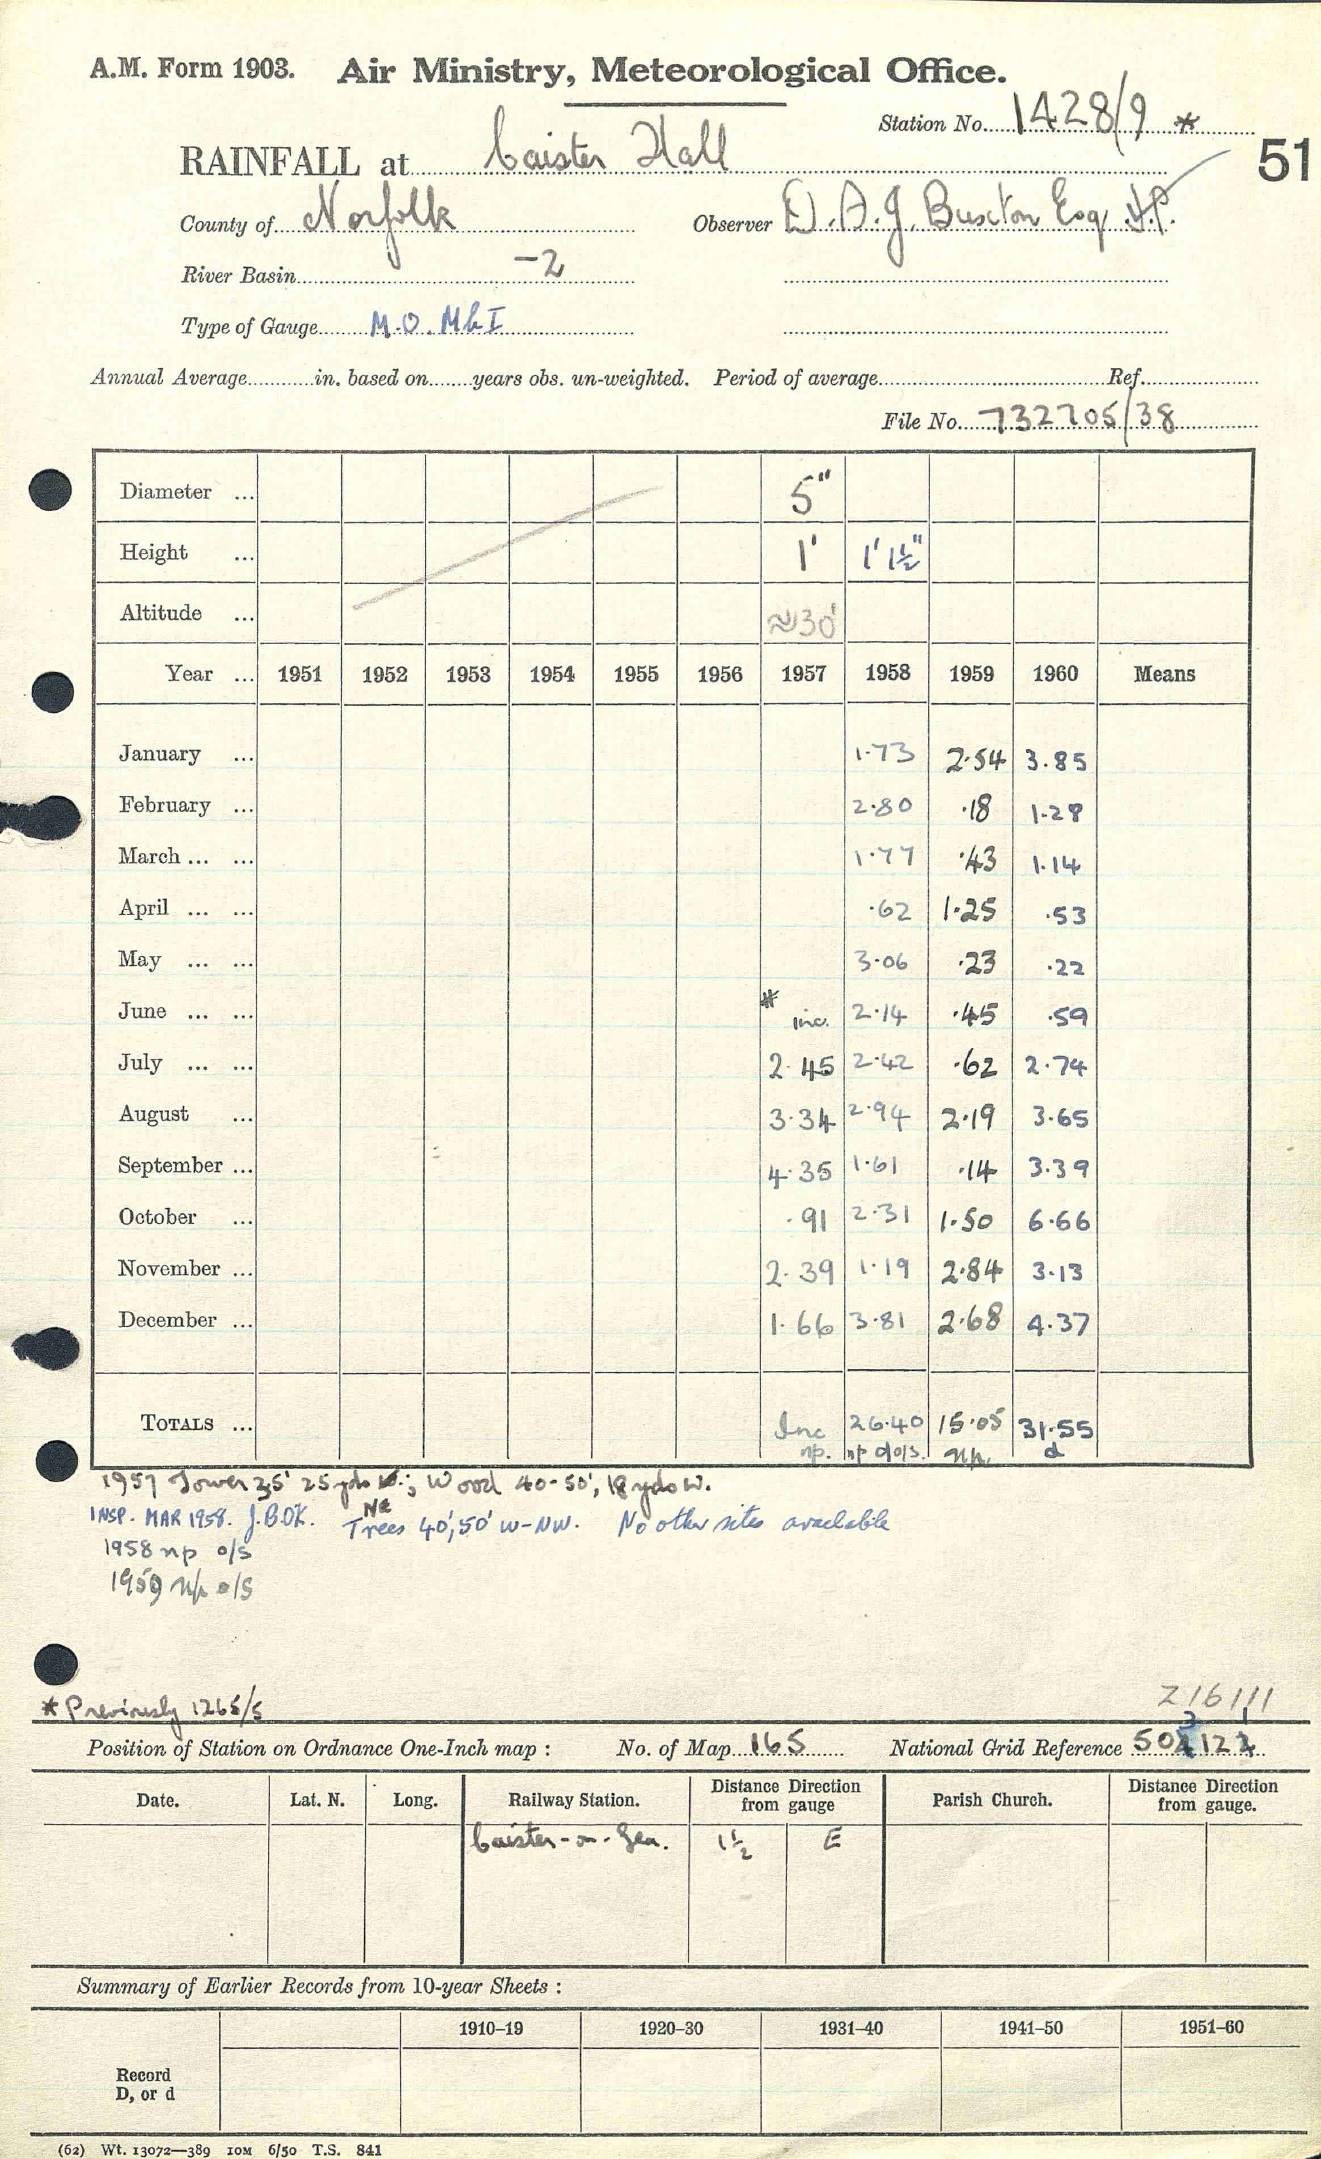 A.M. Form 1903. Air Ministry, Meteorological Office.
Station No. 1428/9 *
51
RAINFALL at Caister Hall
County of Norfolk Observer D. A. J. Buxton Esq. J.P.
River Basin -2
Type of Gauge M.O. Mk I
Annual Average in. based on years obs. un-weighted. Period of average Ref.
File No. 732705/38
Diameter ... 5"
Height ... 1' 1'1½"
Altitude ... ≈30'
Year ... 1951 1952 1953 1954 1955 1956 1957 1958 1959 1960 Means
January ... 1.73 2.54 3.85
February ... 2.80 .18 1.28
March ... ... 1.77 .43 1.14
April ... ... .62 1.25 .53
May ... ... 3.06 .23 .22
June ... ... * inc. 2.14 .45 .59
July ... ... 2.45 2.42 .62 2.74
August ... 3.34 2.94 2.19 3.65
September ... 4.35 1.61 .14 3.39
October ... .91 2.31 1.50 6.66
November ... 2.39 1.19 2.84 3.13
December ... 1.66 3.81 2.68 4.37
TOTALS ... Inc 26.40 15.05 31.55
np. np d o/s. np. d
1957 Tower 35' 25 yds NE; Wood 40-50', 18 yds W.
INSP. MAR 1958. J.B.OK. Trees 40', 50' W-NW. No other sites available
1958 np o/s
1959 np o/s
* Previously 1265/5
Z16111
Position of Station on Ordnance One-Inch map : No. of Map 165 National Grid Reference 503121
Date. Lat. N. Long. Railway Station. Distance Direction from gauge Parish Church. Distance Direction from gauge.
Caister-on-Sea. 1½ E
Summary of Earlier Records from 10-year Sheets :
1910–19 1920–30 1931–40 1941–50 1951–60
Record
D, or d
(62) Wt. 13072—389 10M 6/50 T.S. 841